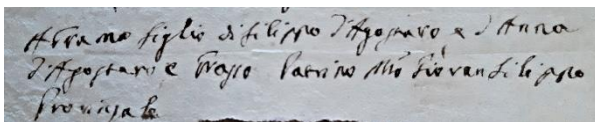 Abramo figlio di filippo d'Agostaro e d'Anna
d'Agostaro e Grasso Patrino Mro Giovan filippo
Provinzale